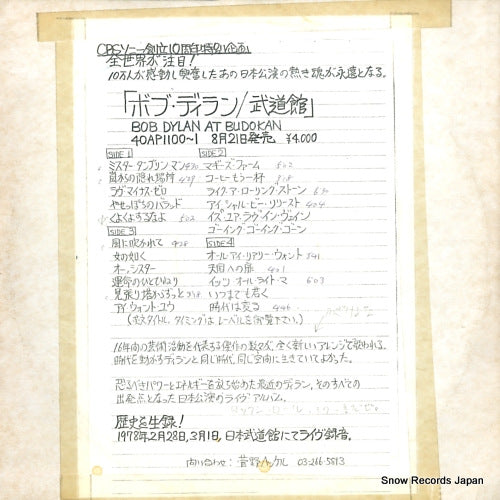 CBSソニー創立10周年特別企画
全世界が注目!
10万人が感動し興奮したあの日本公演の熱き魂が永遠となる。
「ボブ・ディラン/武道館」
BOB DYLAN AT BUDOKAN
40AP1100~1 8月21日発売 ¥4,000
SIDE 1
ミスター タンブリン マン
嵐からの隠れ場所 439
ラヴ マイナス・ゼロ
やせっぽちのバラッド
くよくよするなよ 502
SIDE 2
マギーズ・ファーム 502
コーヒーもう一杯 318
ライク・ア・ローリング・ストーン
アイ・シャル・ビー・リリースト 404
イズ・ユア・ラヴ・イン・ヴェイン
ゴーイング・ゴーイング・ゴーン
SIDE 3
風に吹かれて 428
女の如く
オー、シスター
運命のひとひねり
見張り塔からずっと
アイ・ウォント・ユウ
SIDE 4
オール・アイ・リアリー・ウォント 341
天国への扉 401
イッツ・オールライト・マ 603
いつまでも若く
時代は変る 446
(ポスタイトル、タイミングはレーベルを御覧下さい。)
16年間の芸術活動を代表する傑作の数々が、全く新しいアレンジで歌われる。
時代を動かすディランと同じ時代、同じ空間に生きていてよかった。
恐るべきパワーとエネルギーを放ち始めた最近のディラン、そのすべての
出発点となった日本公演のライヴ アルバム。
歴史を生録!
1978年2月28日、3月1日、日本武道館にてライヴ録音。
問い合わせ: 菅野ヘッケル 03-266-5813
Snow Records Japan